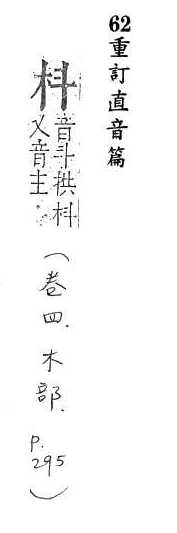 62重訂直音篇
枓音斗栱枓
又音主
(卷四.木部.P.295)